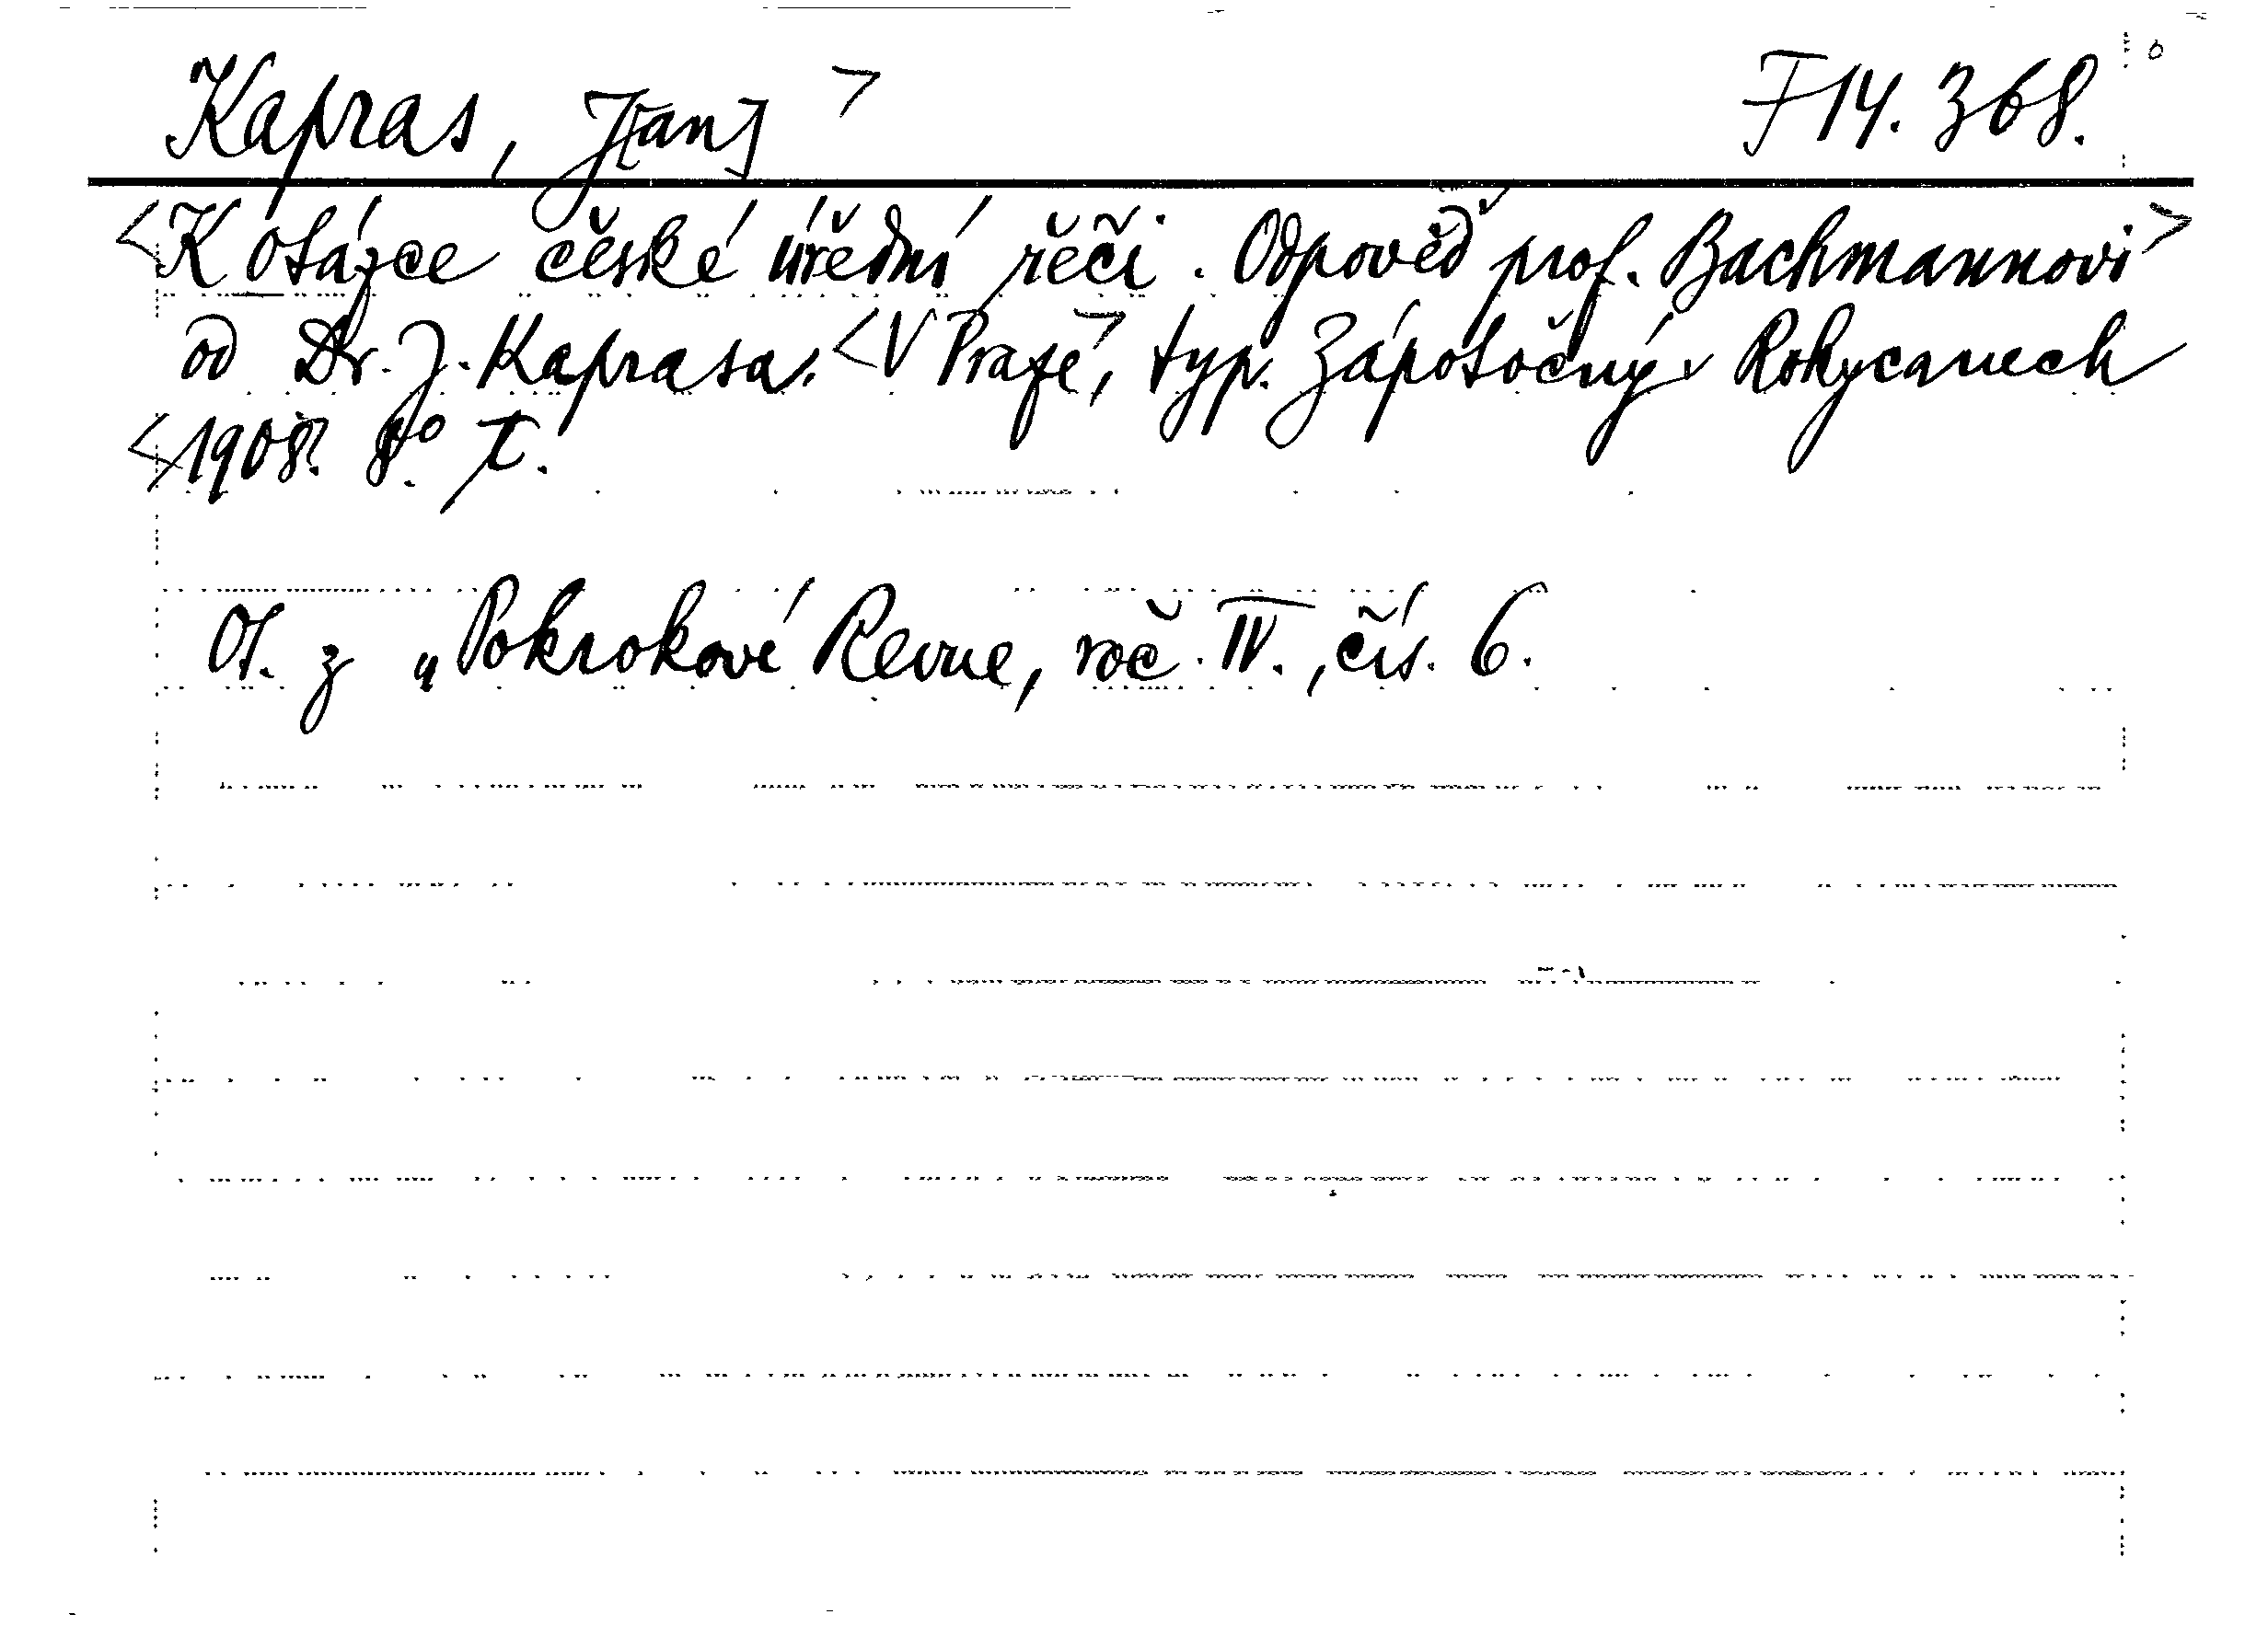 Kapras, J[an] > F 14.368.
<K otázce české úřední řeči. Odpověď prof. Bachmannovi>
od Dr. J. Kaprasa. <V Praze>, typ. Zápotočný v Rokycanech
<1908. 8°.
Ot. z „Pokrokové Revue, roč. IV., čís. 6.